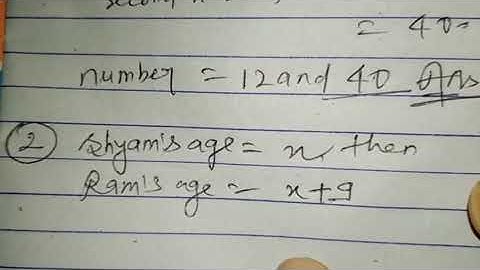 = 40
number = 12 and 40 Ans
② Shyam's age = x, then
Ram's age = x+9